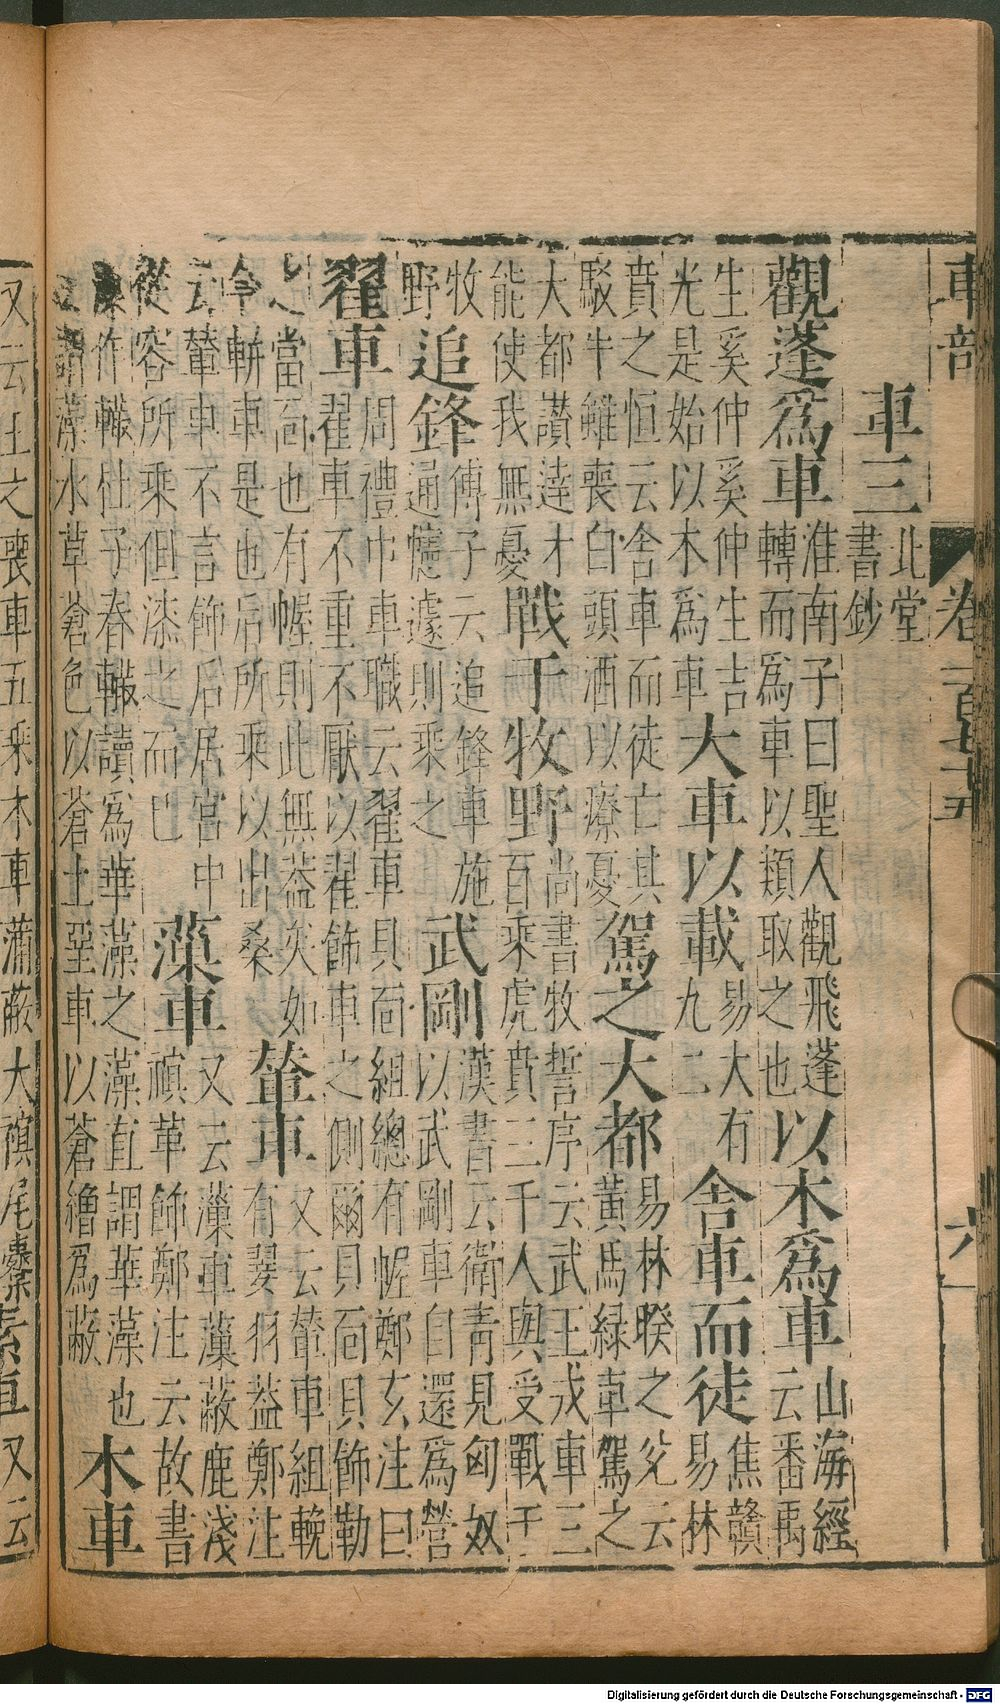 車部 卷一百五十五 六
車三 北堂
書鈔
觀蓬爲車 淮南子曰聖人觀飛蓬
轉而爲車以類取之也 以木爲車 山海經
云番禺
生奚仲奚仲生吉
光是始以木爲車 大車以載 易大有
九二 舍車而徒 焦贛
易林
賁之恒云舍車而徒亡其
駁牛雖喪白頭酒以療憂 駕之大都 易林暌之兊云
黃馬綠車駕之
大都讃達才
能使我無憂 戰于牧野 尚書牧誓序云武王戎車三
百乘虎賁三千人與受戰于
牧
野 追鋒 傅子云追鋒車施
通幰遽則乘之 武剛 漢書云衛青見匈奴
以武剛車自還爲營
翟車 周禮巾車職云翟車貝靣組總有幄鄭玄注曰
翟車不重不厭以翟飾車之側爾貝靣貝飾勒
之當靣也有幄則此無葢矣如
今軿車是也后所乘以出桑 輦車 又云輦車組輓
有翣羽葢鄭注
云輦車不言飾后居宮中
從容所乘但漆之而巳 藻車 又云藻車藻蔽鹿淺
禎革飾鄭注云故書
藻作轍杜子春轍讀爲華藻之藻直謂華藻也
謂藻水草蒼色以蒼土堊車以蒼繒爲蔽 木車
又云王之喪車五乘木車蒲蔽大禎尾櫜素直又云
Digitalisierung gefördert durch die Deutsche Forschungsgemeinschaft - DFG